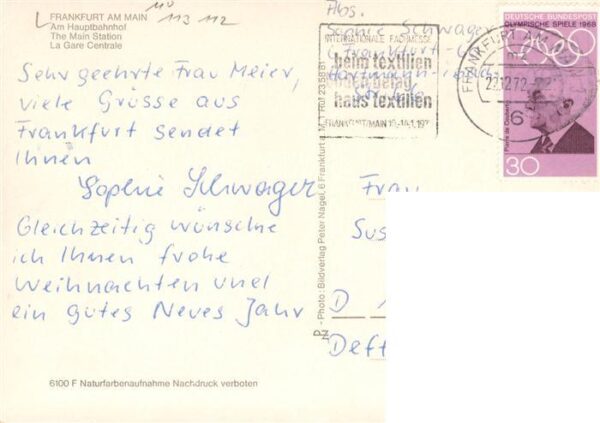 FRANKFURT AM MAIN
Am Hauptbahnhof
The Main Station
La Gare Centrale
113 112
Sehr geehrte Frau Meier,
viele Grüsse aus
Frankfurt sendet
Ihnen
Sophie Schwager
Gleichzeitig wünsche
ich Ihnen frohe
Weihnachten und
ein gutes Neues Jahr
6100 F Naturfarbenaufnahme Nachdruck verboten
Photo: Bildverlag Peter Nagel, 6 Frankfurt a. M. 1, Ruf 23 58 81
Abs.
Sophie Schwager
6 Frankfurt
INTERNATIONALE FACHMESSE
heimtextilien
bodenbelag
haustextilien
FRANKFURT/MAIN
FRANKFURT AM
DEUTSCHE BUNDESPOST
OLYMPISCHE SPIELE 1968
Pierre de Coubertin
30
6
Frau
Sus
D
Deff